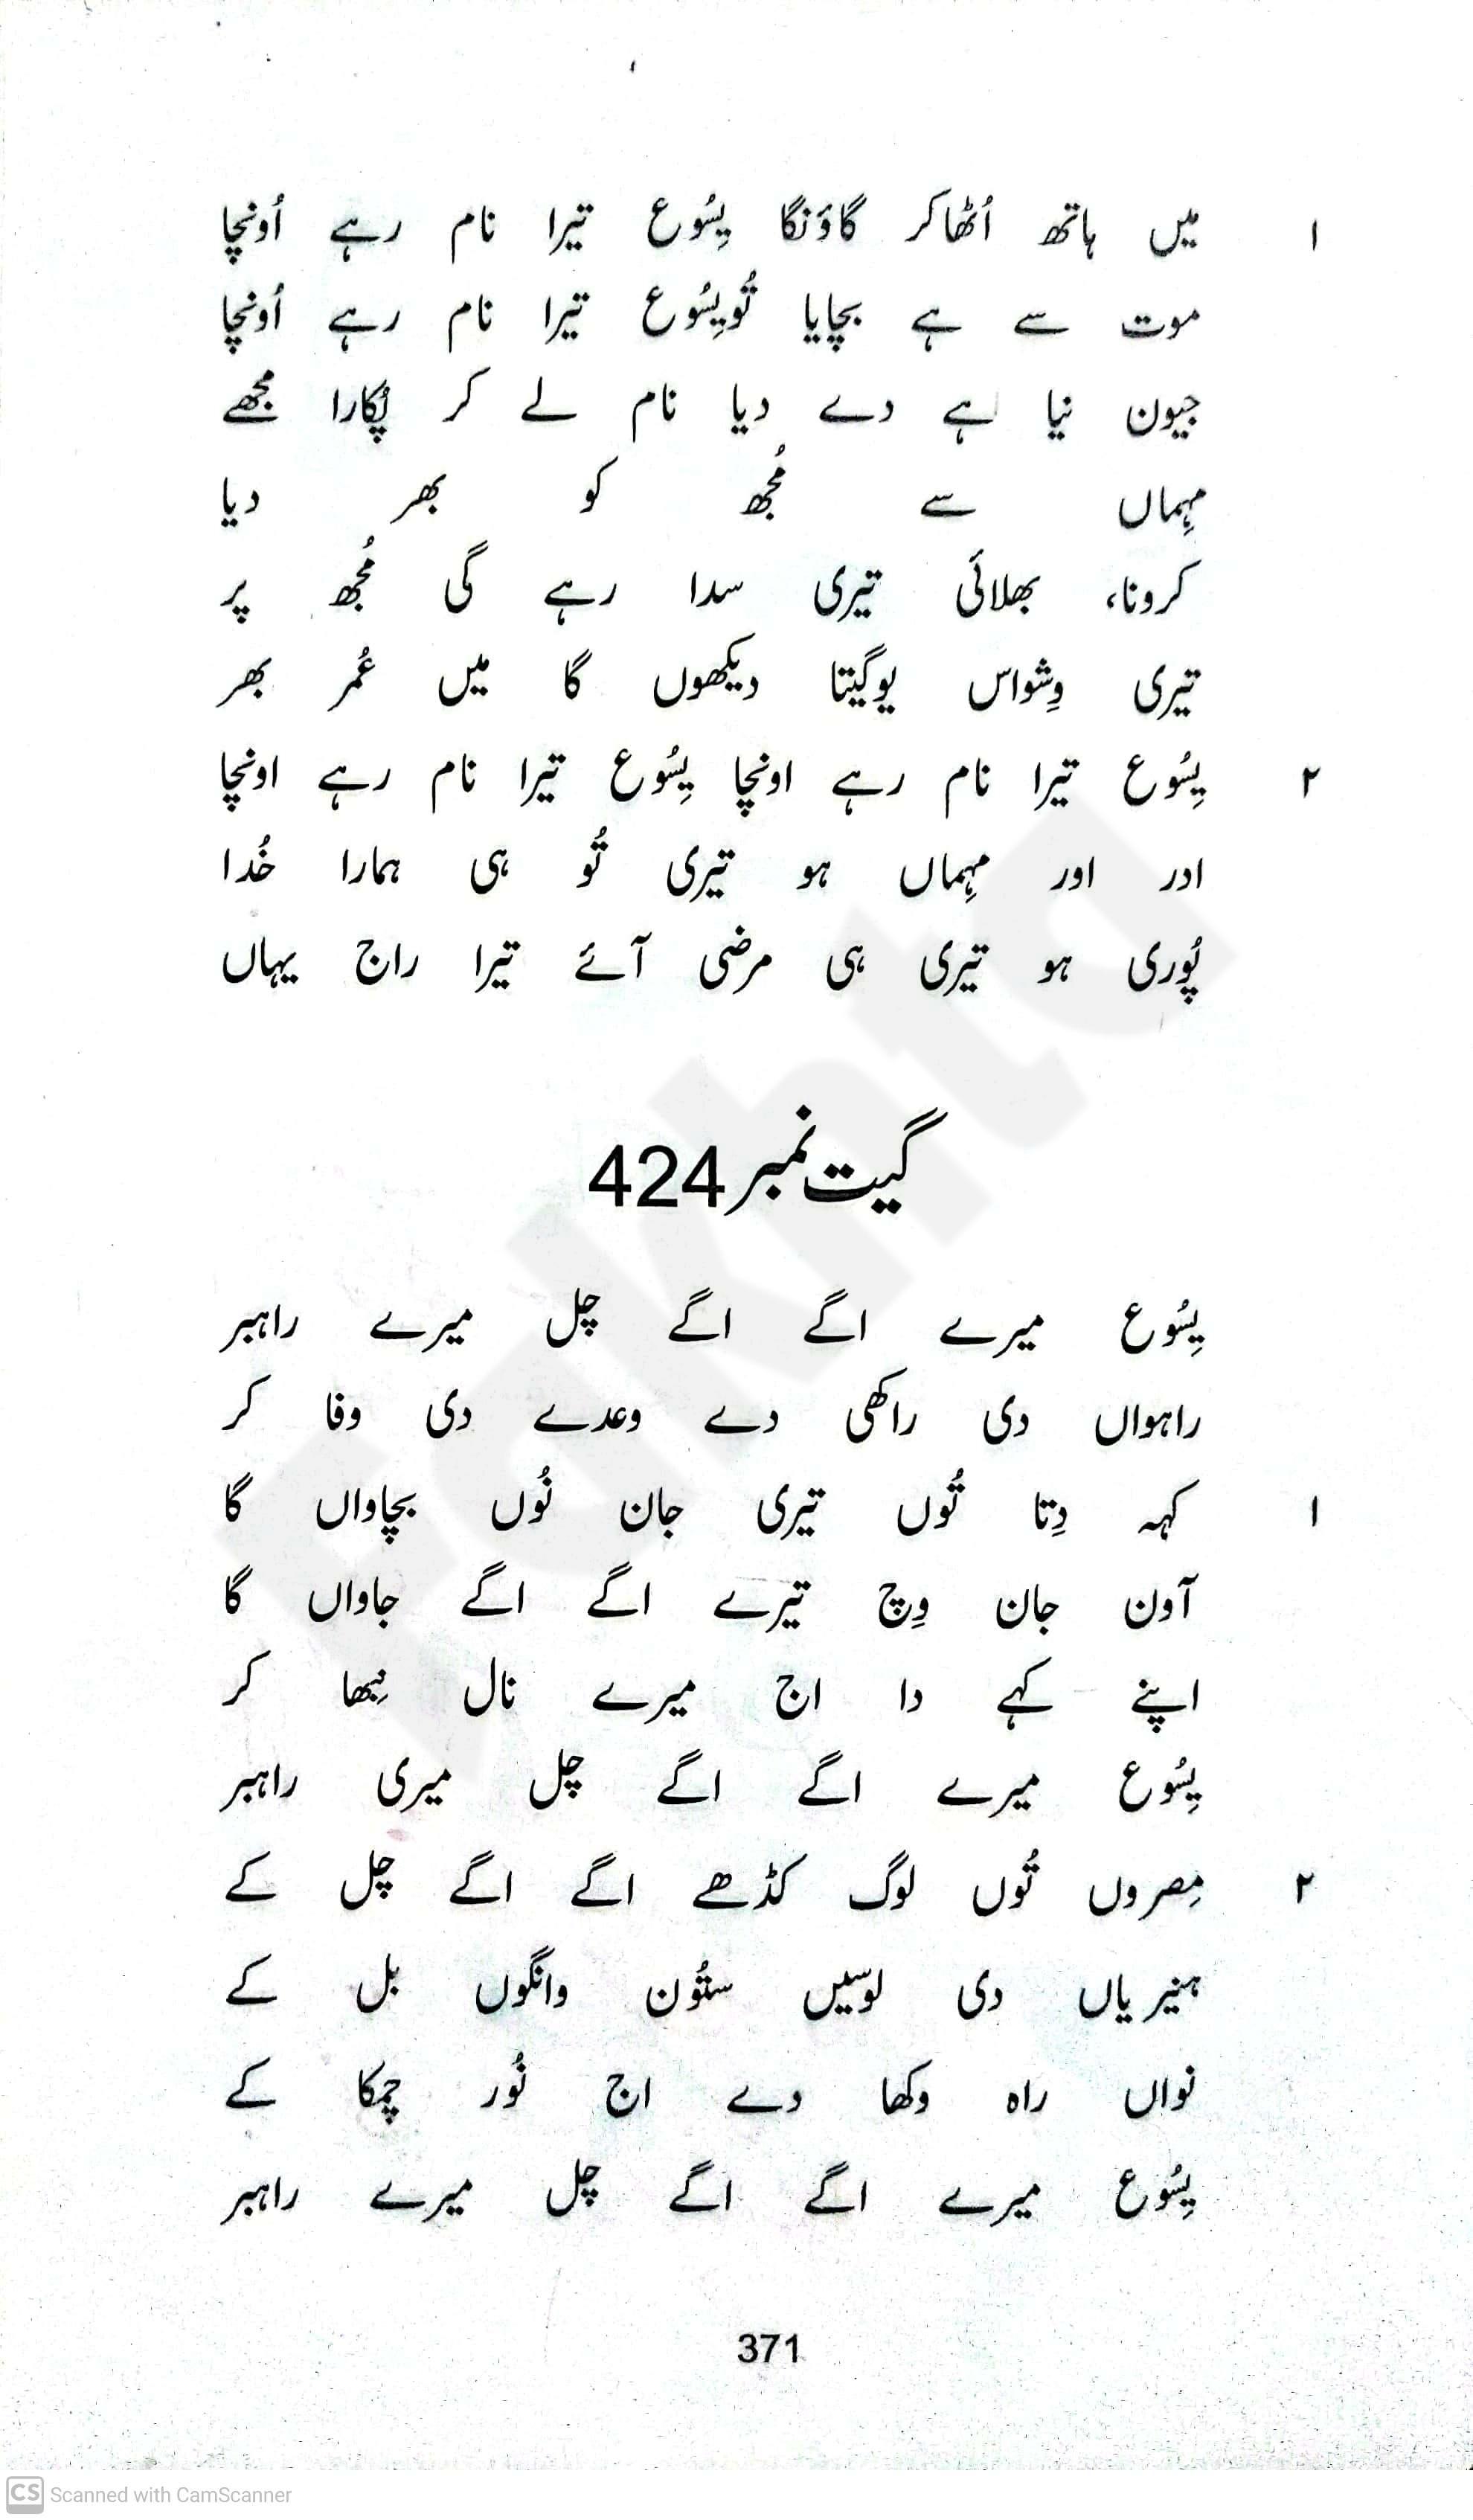 ۱ میں ہاتھ اُٹھا کر گاؤنگا یِسُوع تیرا نام رہے اُونچا
موت سے ہے بچایا تُویِسُوع تیرا نام رہے اُونچا
جیون نیا ہے دے دیا نام لے کر پُکارا مجھے
مہِماں سے مُجھ کو بھر دیا
کرونا، بھلائی تیری سدا رہے گی مُجھ پر
تیری وِشواس یوگیتا دیکھوں گا میں عُمر بھر
۲ یِسُوع تیرا نام رہے اونچا یِسُوع تیرا نام رہے اونچا
ادر اور مہِماں ہو تیری تُو ہی ہمارا خُدا
پُوری ہو تیری ہی مرضی آئے تیرا راج یہاں
گیت نمبر 424
یِسُوع میرے اگے اگے چل میرے راہبر
راہواں دی راکھی دے وعدے دی وفا کر
۱ کہہ دِتا تُوں تیری جان نُوں بچاواں گا
آون جان وِچ تیرے اگے اگے جاواں گا
اپنے کہے دا اج میرے نال نِبھا کر
یِسُوع میرے اگے اگے چل میری راہبر
۲ مِصروں تُوں لوگ کڈھے اگے اگے چل کے
ہنیریاں دی لوسیں ستُون وانگوں بل کے
نواں راہ وکھا دے اج نُور چمکا کے
یِسُوع میرے اگے اگے چل میرے راہبر
371
Fakhta
CS Scanned with CamScanner